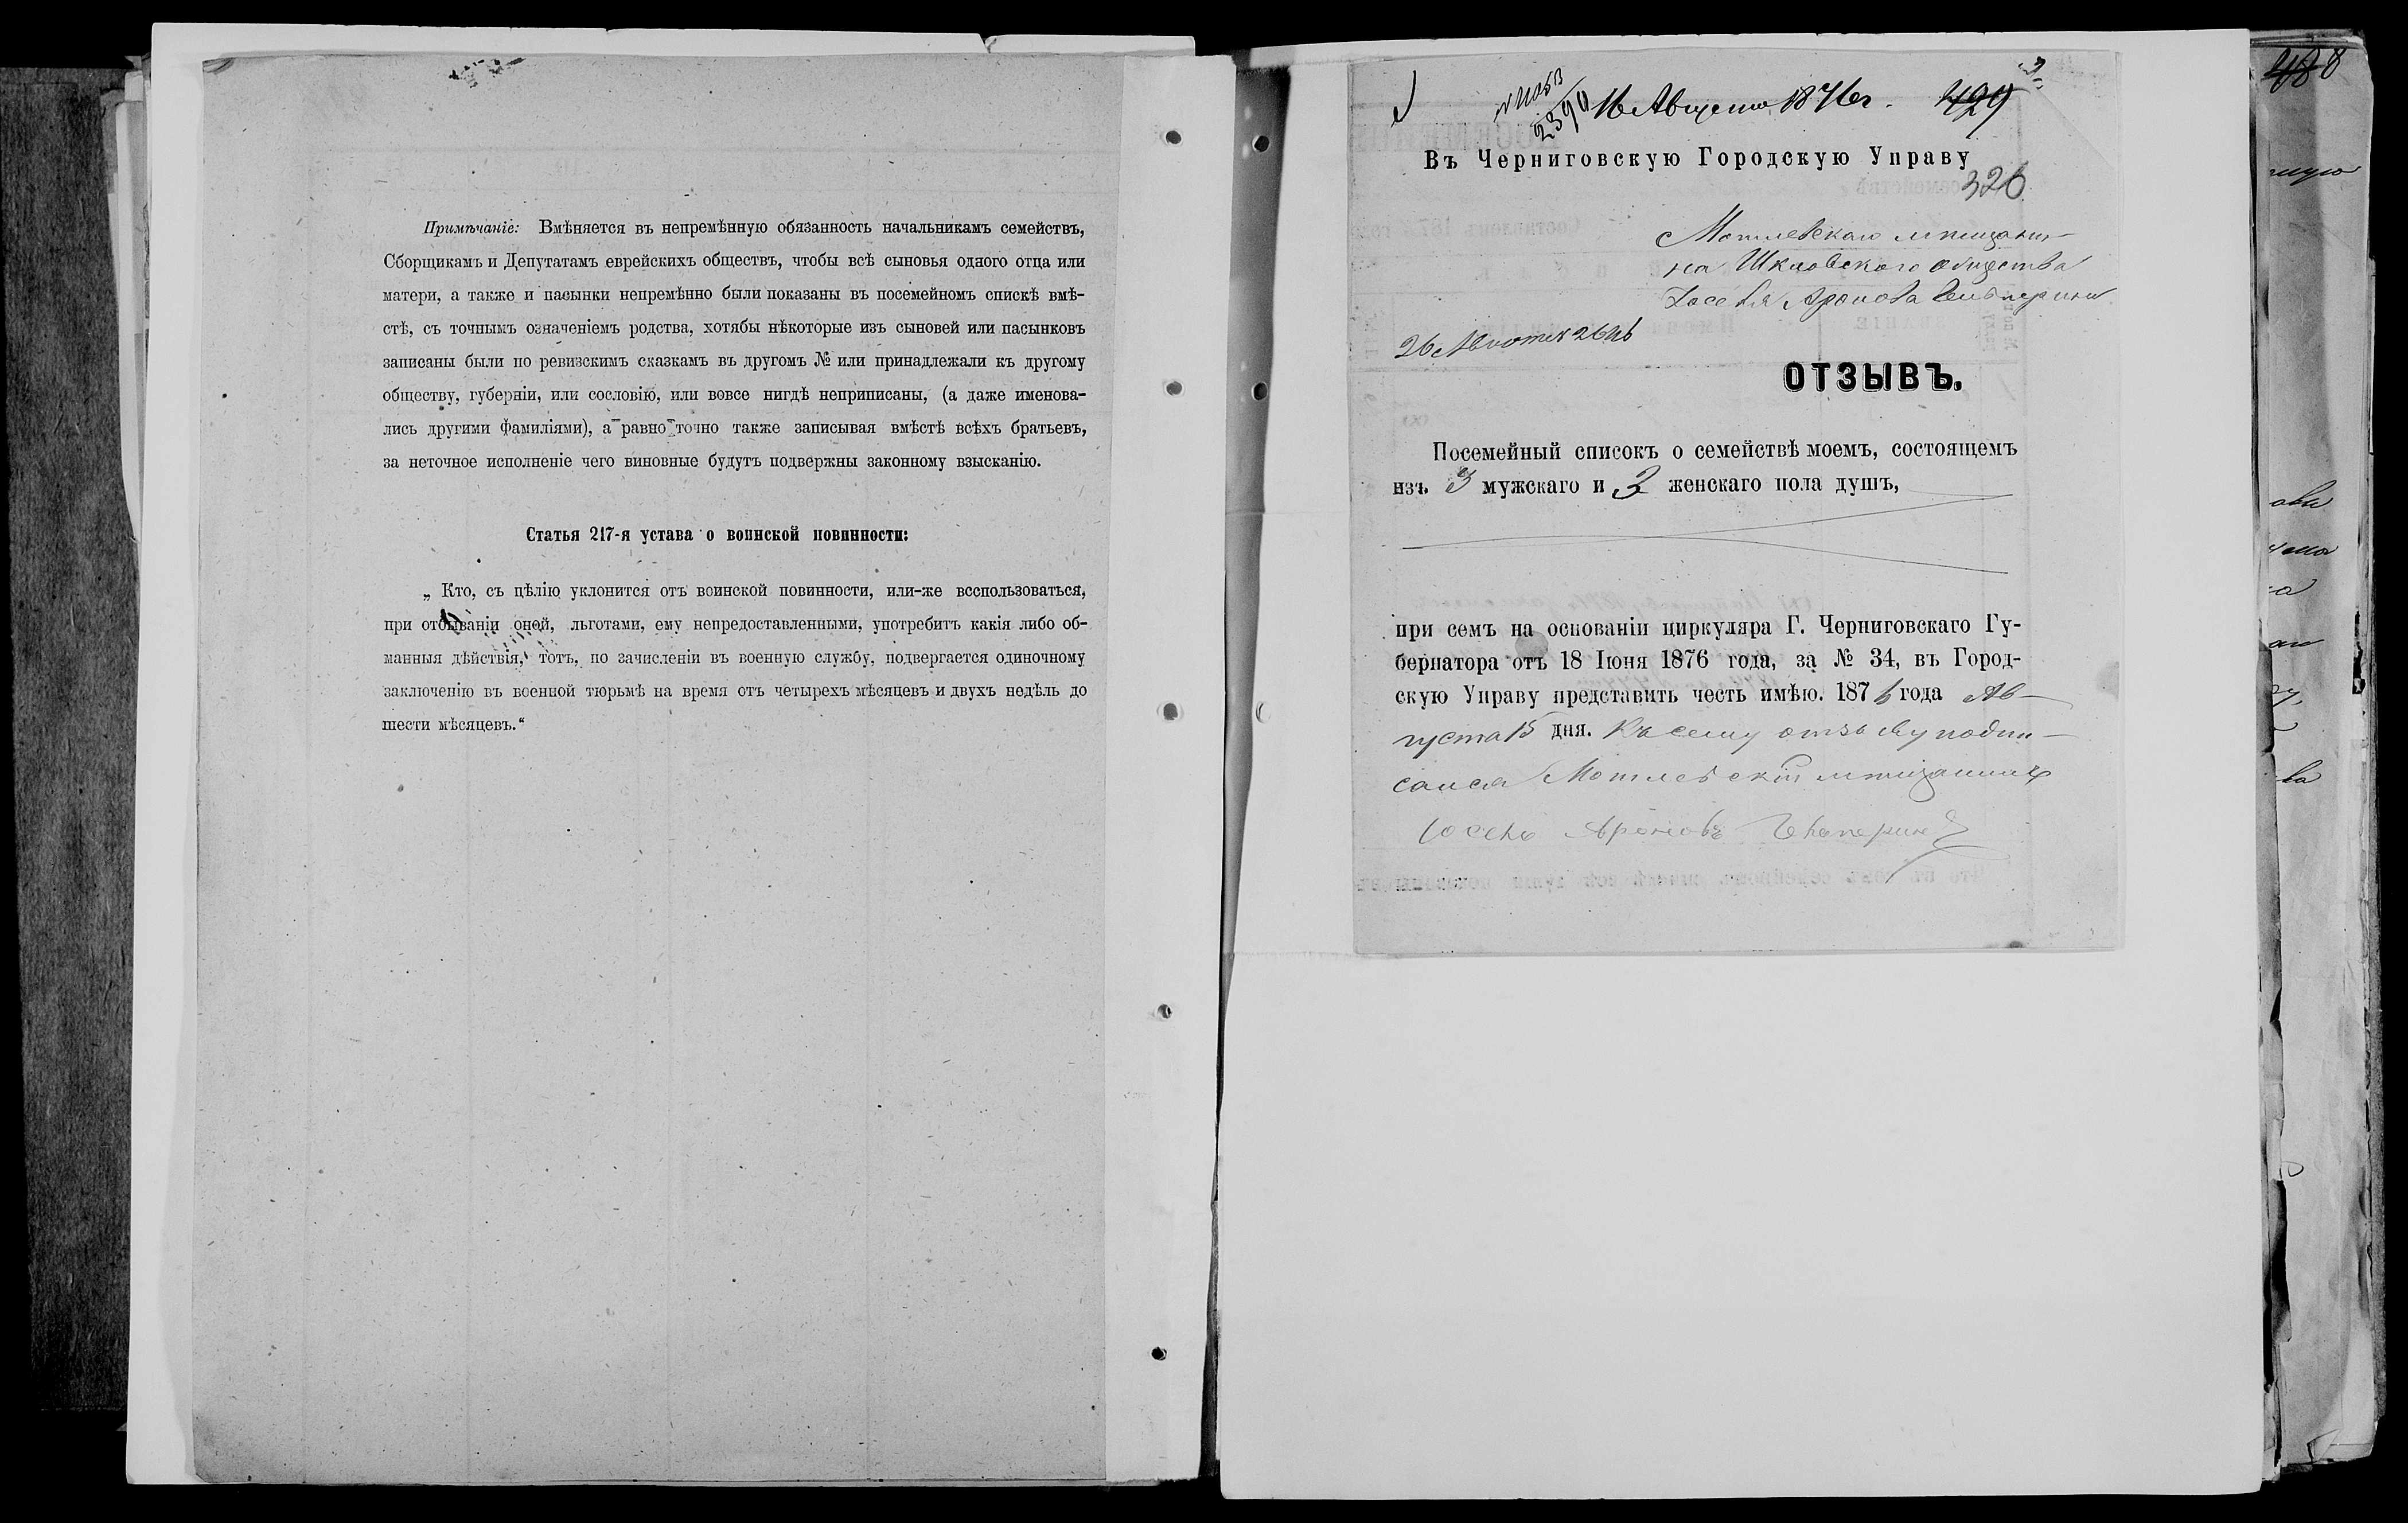 Примѣчаніе: Вмѣняется въ непремѣнную обязанность начальникамъ семействъ,
Сборщикамъ и Депутатамъ еврейскихъ обществъ, чтобы всѣ сыновья одного отца или
матери, а также и пасынки непремѣнно были показаны въ посемейномъ спискѣ вмѣ-
стѣ, съ точнымъ означеніемъ родства, хотябы нѣкоторые изъ сыновей или пасынковъ
записаны были по ревизскимъ сказкамъ въ другомъ № или принадлежали къ другому
обществу, губерніи, или сословію, или вовсе нигдѣ неприписаны, (а даже именова-
лись другими фамиліями), а равно точно также записывая вмѣстѣ всѣхъ братьевъ,
за неточное исполненіе чего виновные будутъ подвержны законному взысканію.
Статья 217-я устава о воинской повинности:
„Кто, съ цѣлію уклонится отъ воинской повинности, или-же всспользоваться,
при отбываніи оной, льготами, ему непредоставленными, употребитъ какія либо об-
манныя дѣйствія, тотъ, по зачисленіи въ военную службу, подвергается одиночному
заключенію въ военной тюрьмѣ на время отъ четырехъ мѣсяцевъ и двухъ недѣль до
шести мѣсяцевъ.“
16 Августа 1876 г. 429
Въ Черниговскую Городскую Управу
326
Могилевскаго мѣщани-
на Шкловскаго общества
Аронова
ОТЗЫВЪ.
Посемейный списокъ о семействѣ моемъ, состоящемъ
изъ 3 мужскаго и 3 женскаго пола душъ,
при семъ на основаніи циркуляра Г. Черниговскаго Гу-
бернатора отъ 18 Іюня 1876 года, за № 34, въ Город-
скую Управу представить честь имѣю. 1876 года Ав-
густа 15 дня. Къ сему отзыву подпи-
сался Могилевскій мѣщанинъ
Ароновъ
488